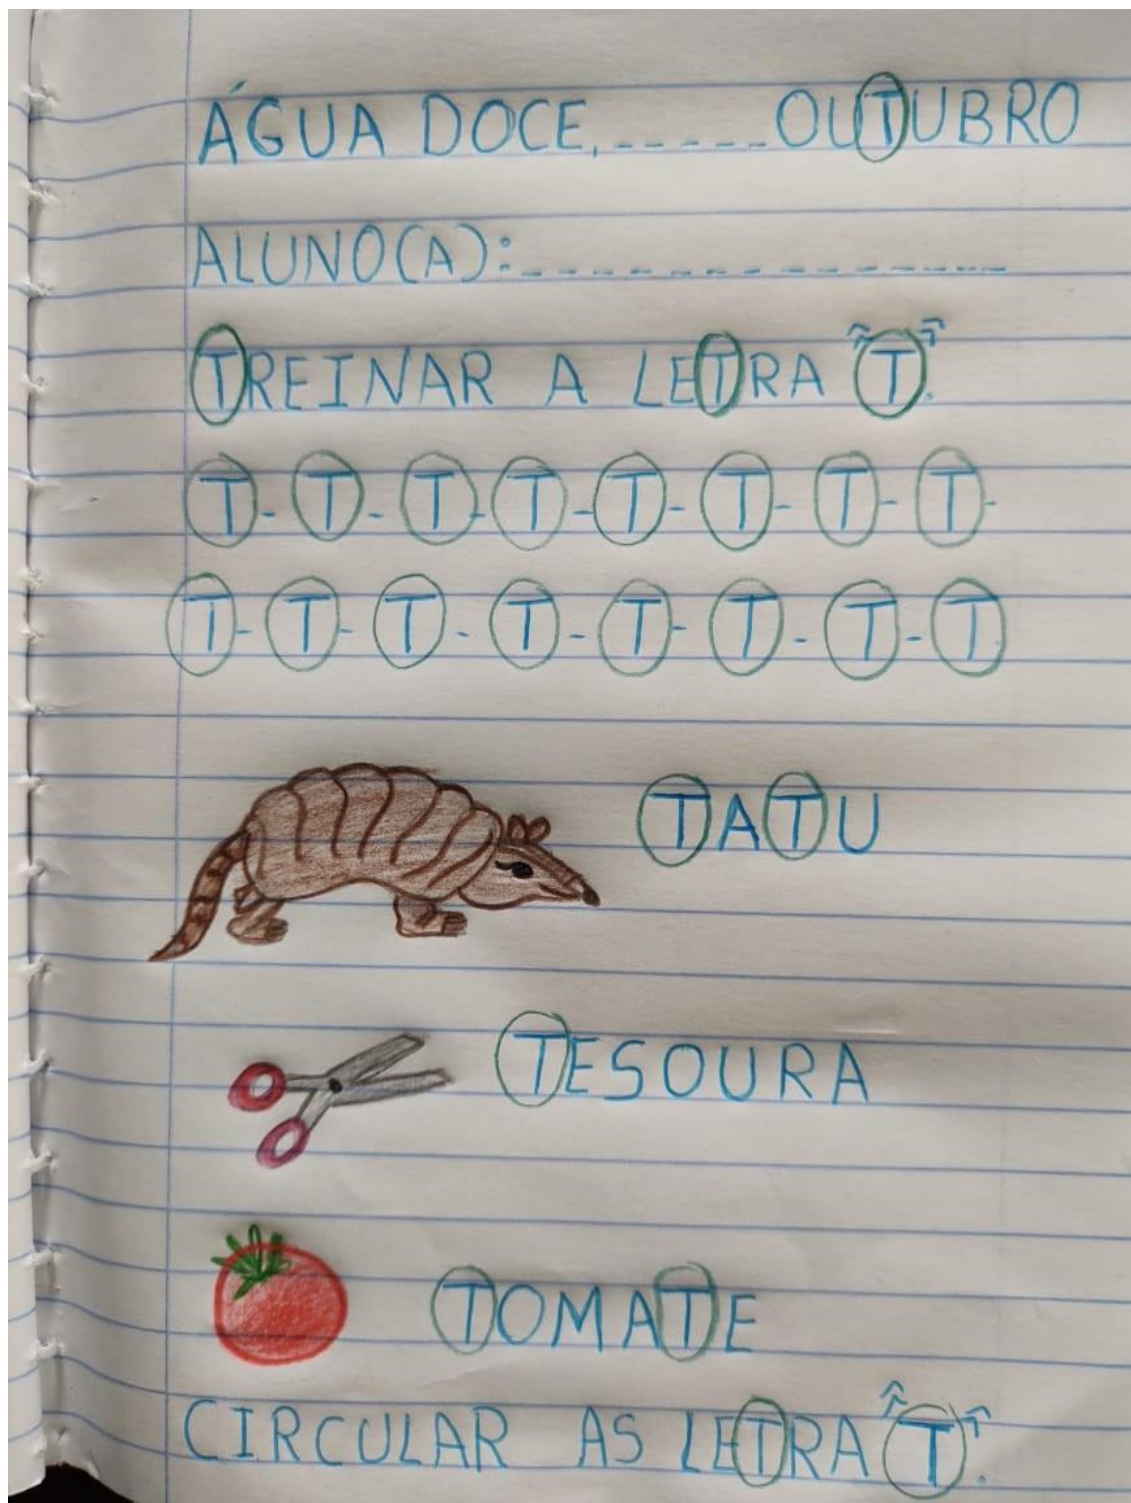 ÁGUA DOCE, _ _ _ _ _ OUTUBRO
ALUNO(A): _ _ _ _ _ _ _ _ _ _ _ _ _
TREINAR A LETRA "T".
T - T - T - T - T - T - T - T -
T - T - T - T - T - T - T - T
TATU
TESOURA
TOMATE
CIRCULAR AS LETRA "T".